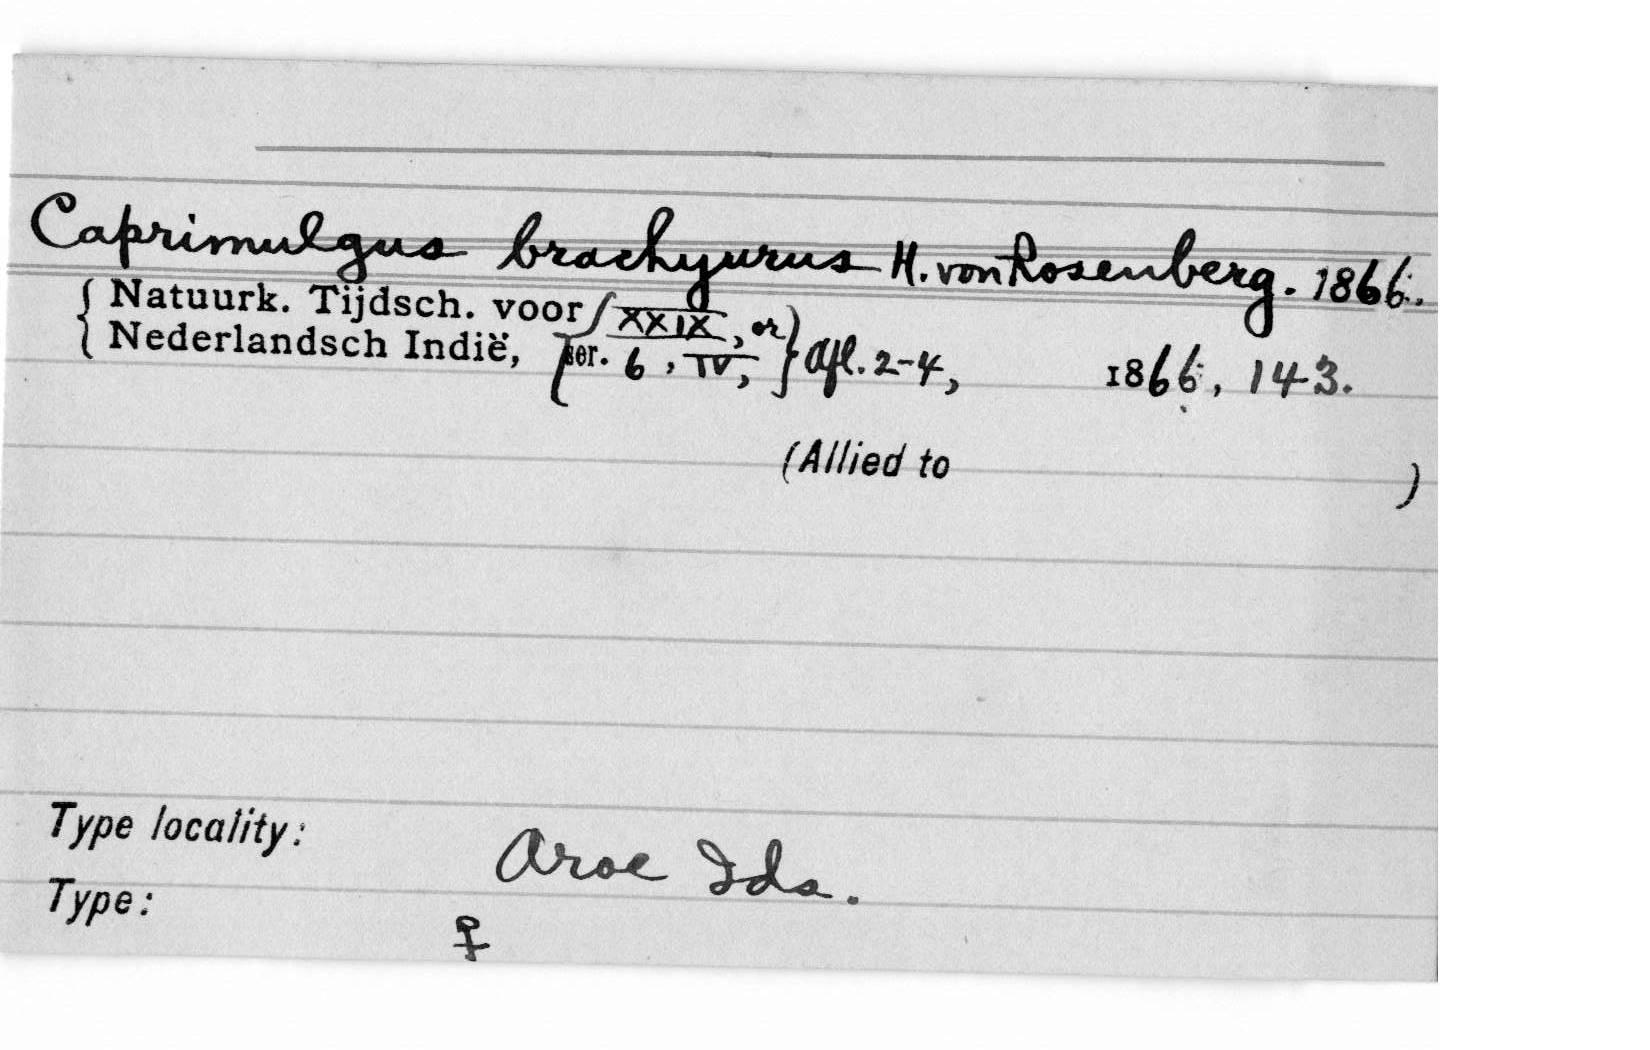 Caprimulgus brachyurus H. von Rosenberg. 1866.
{ Natuurk. Tijdsch. voor { XXIX, or }
{ Nederlandsch Indië, [ ser. 6, IV, } Afl. 2-4, 1866, 143.
(Allied to )
Type locality: Aroe Ids.
Type: ♀